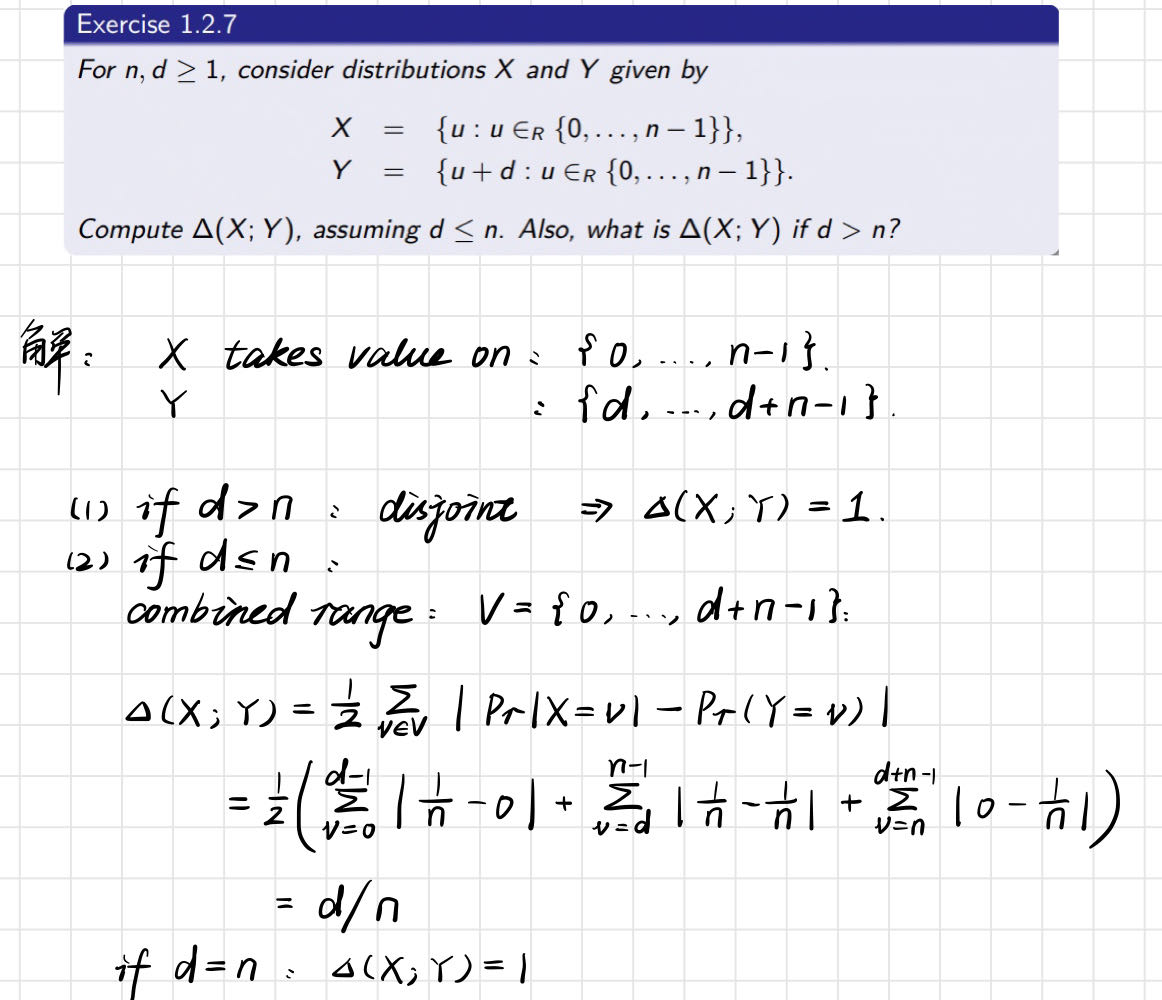 Exercise 1.2.7
For n, d ≥ 1, consider distributions X and Y given by
X = {u : u ∈R {0, . . . , n − 1}},
Y = {u + d : u ∈R {0, . . . , n − 1}}.
Compute Δ(X; Y), assuming d ≤ n. Also, what is Δ(X; Y) if d > n?
解: X takes value on : {0, ..., n-1}.
Y : {d, ..., d+n-1}.
(1) if d > n : disjoint ⇒ Δ(X; Y) = 1.
(2) if d ≤ n :
combined range: V = {0, ..., d+n-1}.
Δ(X; Y) = 1/2 Σ_{v∈V} | Pr|X=v| - Pr(Y=v) |
= 1/2 ( Σ_{v=0}^{d-1} | 1/n - 0 | + Σ_{v=d}^{n-1} | 1/n - 1/n | + Σ_{v=n}^{d+n-1} | 0 - 1/n | )
= d/n
if d=n : Δ(X; Y) = 1